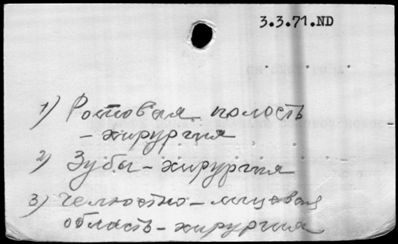 3.3.71.ND
1) Ротовая полость
- хирургия
2) Зубы - хирургия
3) Челюстно - лицевая
область - хирургия